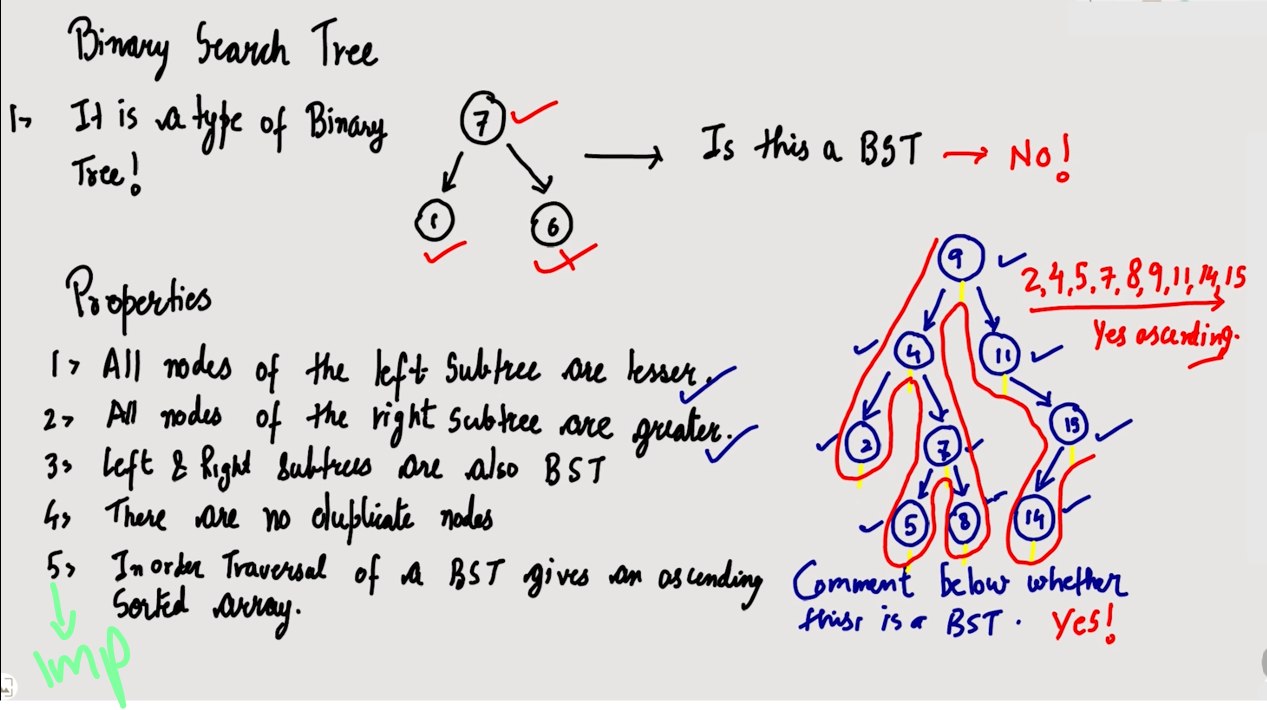 Binary Search Tree
1> It is a type of Binary
Tree!
7
1
6
Is this a BST → No!
Properties
1> All nodes of the left Subtree are lesser.
2> All nodes of the right Subtree are greater.
3> Left & Right Subtrees are also BST
4> There are no duplicate nodes
5> Inorder Traversal of a BST gives an ascending
Sorted array.
Imp
9
2,4,5,7,8,9,11,14,15
Yes ascending.
4
11
2
7
15
5
8
14
Comment below whether
this is a BST. Yes!